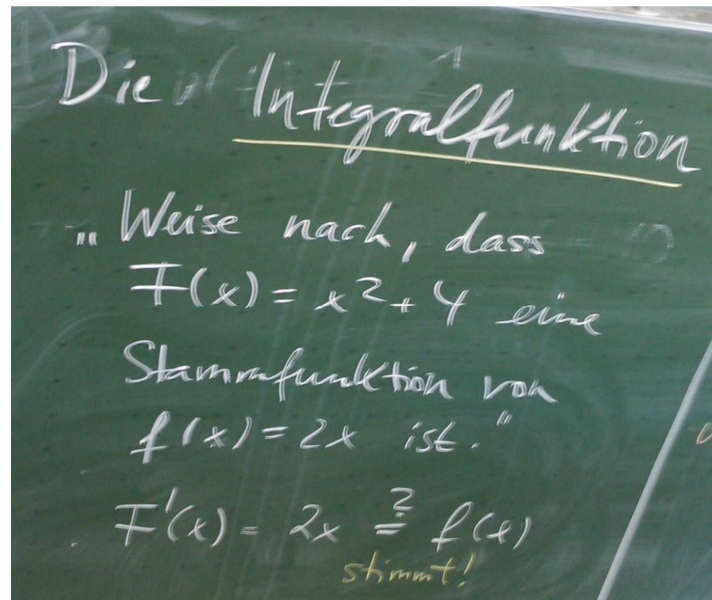 Die Integralfunktion
„Weise nach, dass
F(x) = x² + 4 eine
Stammfunktion von
f(x) = 2x ist.“
F'(x) = 2x ≟ f(x)
stimmt!